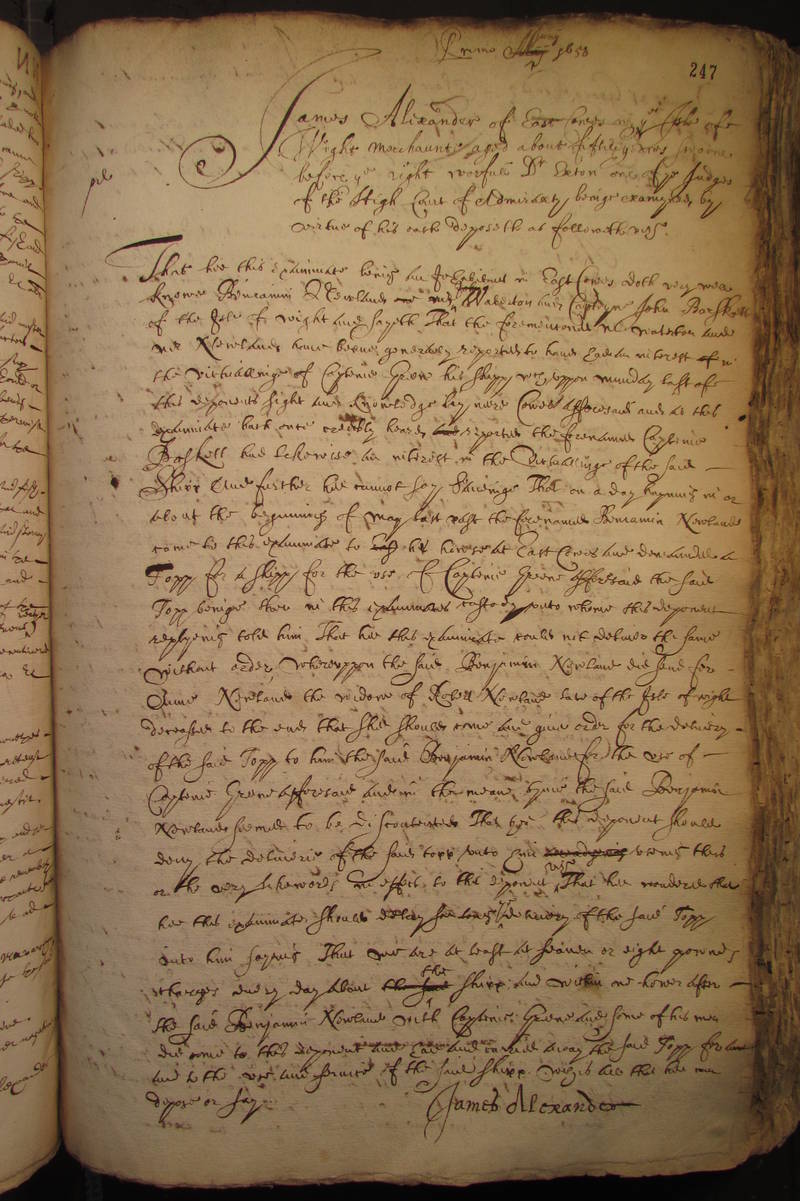 Primo May 1658
247
James Alexander of East Cowes in ye Isle of
Wight Merchaunte aged about fiftie yeares sworne
before ye right worfull Dr Exton one of ye Judges
of the High Court of Admiralty beinge examined by
virtue of his oath deposeth as followeth vizt.
That hee this examinate being an Inhabitant in East Cowes doth very well
knowe Benjamin Newland mr Waldron and Captayne John Baskett
of the Isle of Wight And sayeth That the forementioned mr and
mr Newland have beene generally reported to have had an interest in
the victuallinge of Captaine Greene his shipp uppon munday last
this deponents sight and knowledge lay neere Cowes afforesaid and as this
examinate hath credibly heard reported the forenamed Captaine
Baskett had likewise an interest in the victuallinge of the said
Shipp And further hee cannot say Saveinge That on a day happning in or
about the beginninge of May last past the forenamed Benjamin Newland
come to this examinate to his howse at East Cowes and demanded a
Topp for a shipp for the use of Captaine Greene afforesaid the said
Topp beinge then in this examinates custody unto whome this deponent
replyeing told him That hee this examinate could not deliver the same
without order, Whereuppon the said Benjamin Newland did send for
Anne Newland the widow of Robert Newland late of the Isle of Wight
deceased to the end that shee should come and give order for the delivery
of the said Topp to him the said Benjamin Newland for the use of
Captaine Greene afforesaid and in the meane tyme the said Benjamin
Newland seemed to be discontented That hee this deponent should
deny the deliverie of the said topp unto him useing this
or the very like words in effect to this deponent vizt That hee wondered that
hee this examinate should delay the delivery of the said Topp
unto him saying That wee are at least at seaven or eight pounds
charges every day about the shipp and within one hower after
the said Benjamin Newland with Captaine Greene and some of his men
did come to this deponent and carried away the said Topp for
and to the use and service of the said shipp. which is all that hee can
depose or say
James Alexander